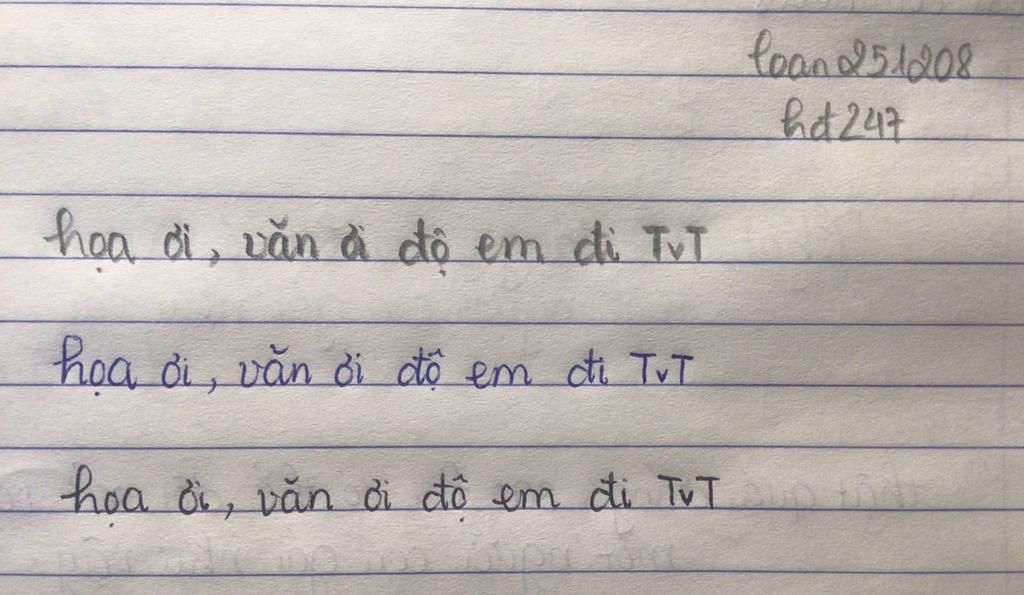 loan251208
hd247
họa ơi, văn ơi độ em đi TvT
họa ơi, văn ơi độ em đi TvT
họa ơi, văn ơi độ em đi TvT